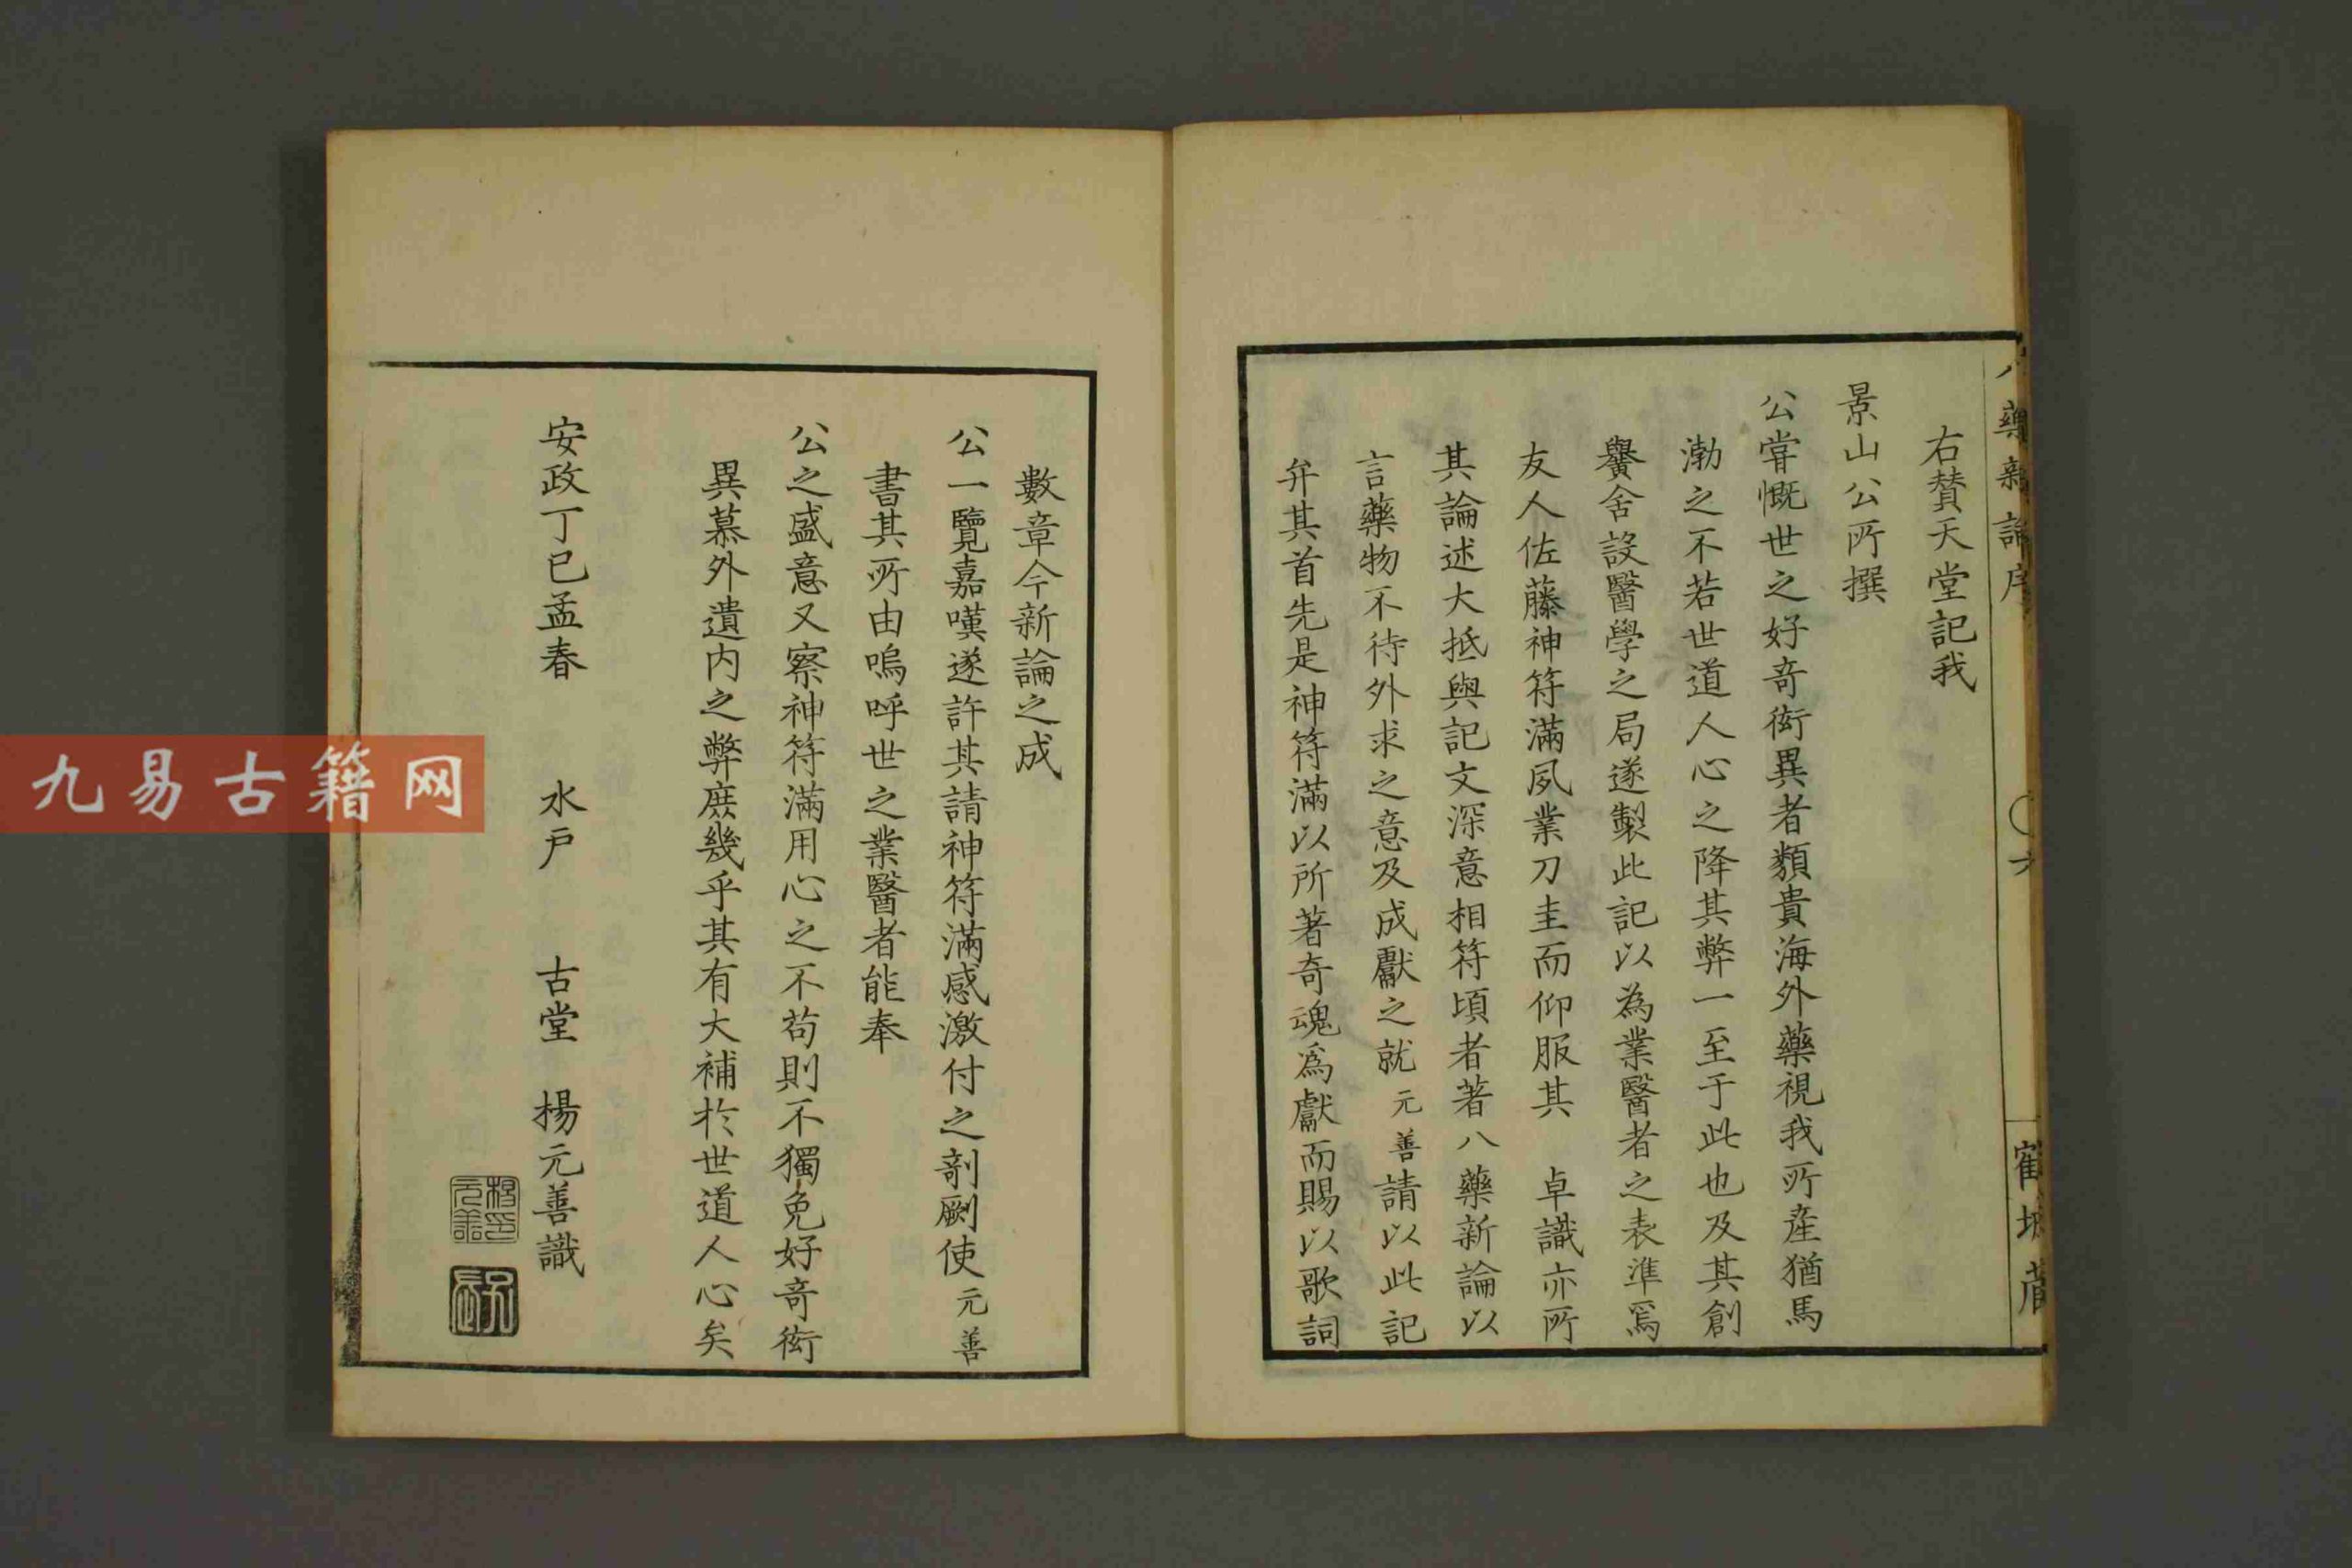 右賛天堂記我
景山公所撰
公甞慨世之好竒衒異者類貴海外藥視我所産猶馬
渤之不若世道人心之降其弊一至于此也及其創
黌舍設醫學之局遂製此記以為業醫者之表準焉
友人佐藤神符滿夙業刀圭而仰服其　卓識亦所
其論述大抵與記文深意相符頃者著八藥新論以
言藥物不待外求之意及成獻之就元善請以此記
弁其首先是神符滿以所著奇魂爲獻而賜以歌詞
數章今新論之成
公一覽嘉嘆遂許其請神符滿感激付之剞劂使元善
書其所由嗚呼世之業醫者能奉
公之盛意又察神符滿用心之不苟則不獨免好竒衒
異慕外遺内之弊庶幾乎其有大補於世道人心矣
安政丁巳孟春　水戶　古堂　楊元善識
九易古籍网